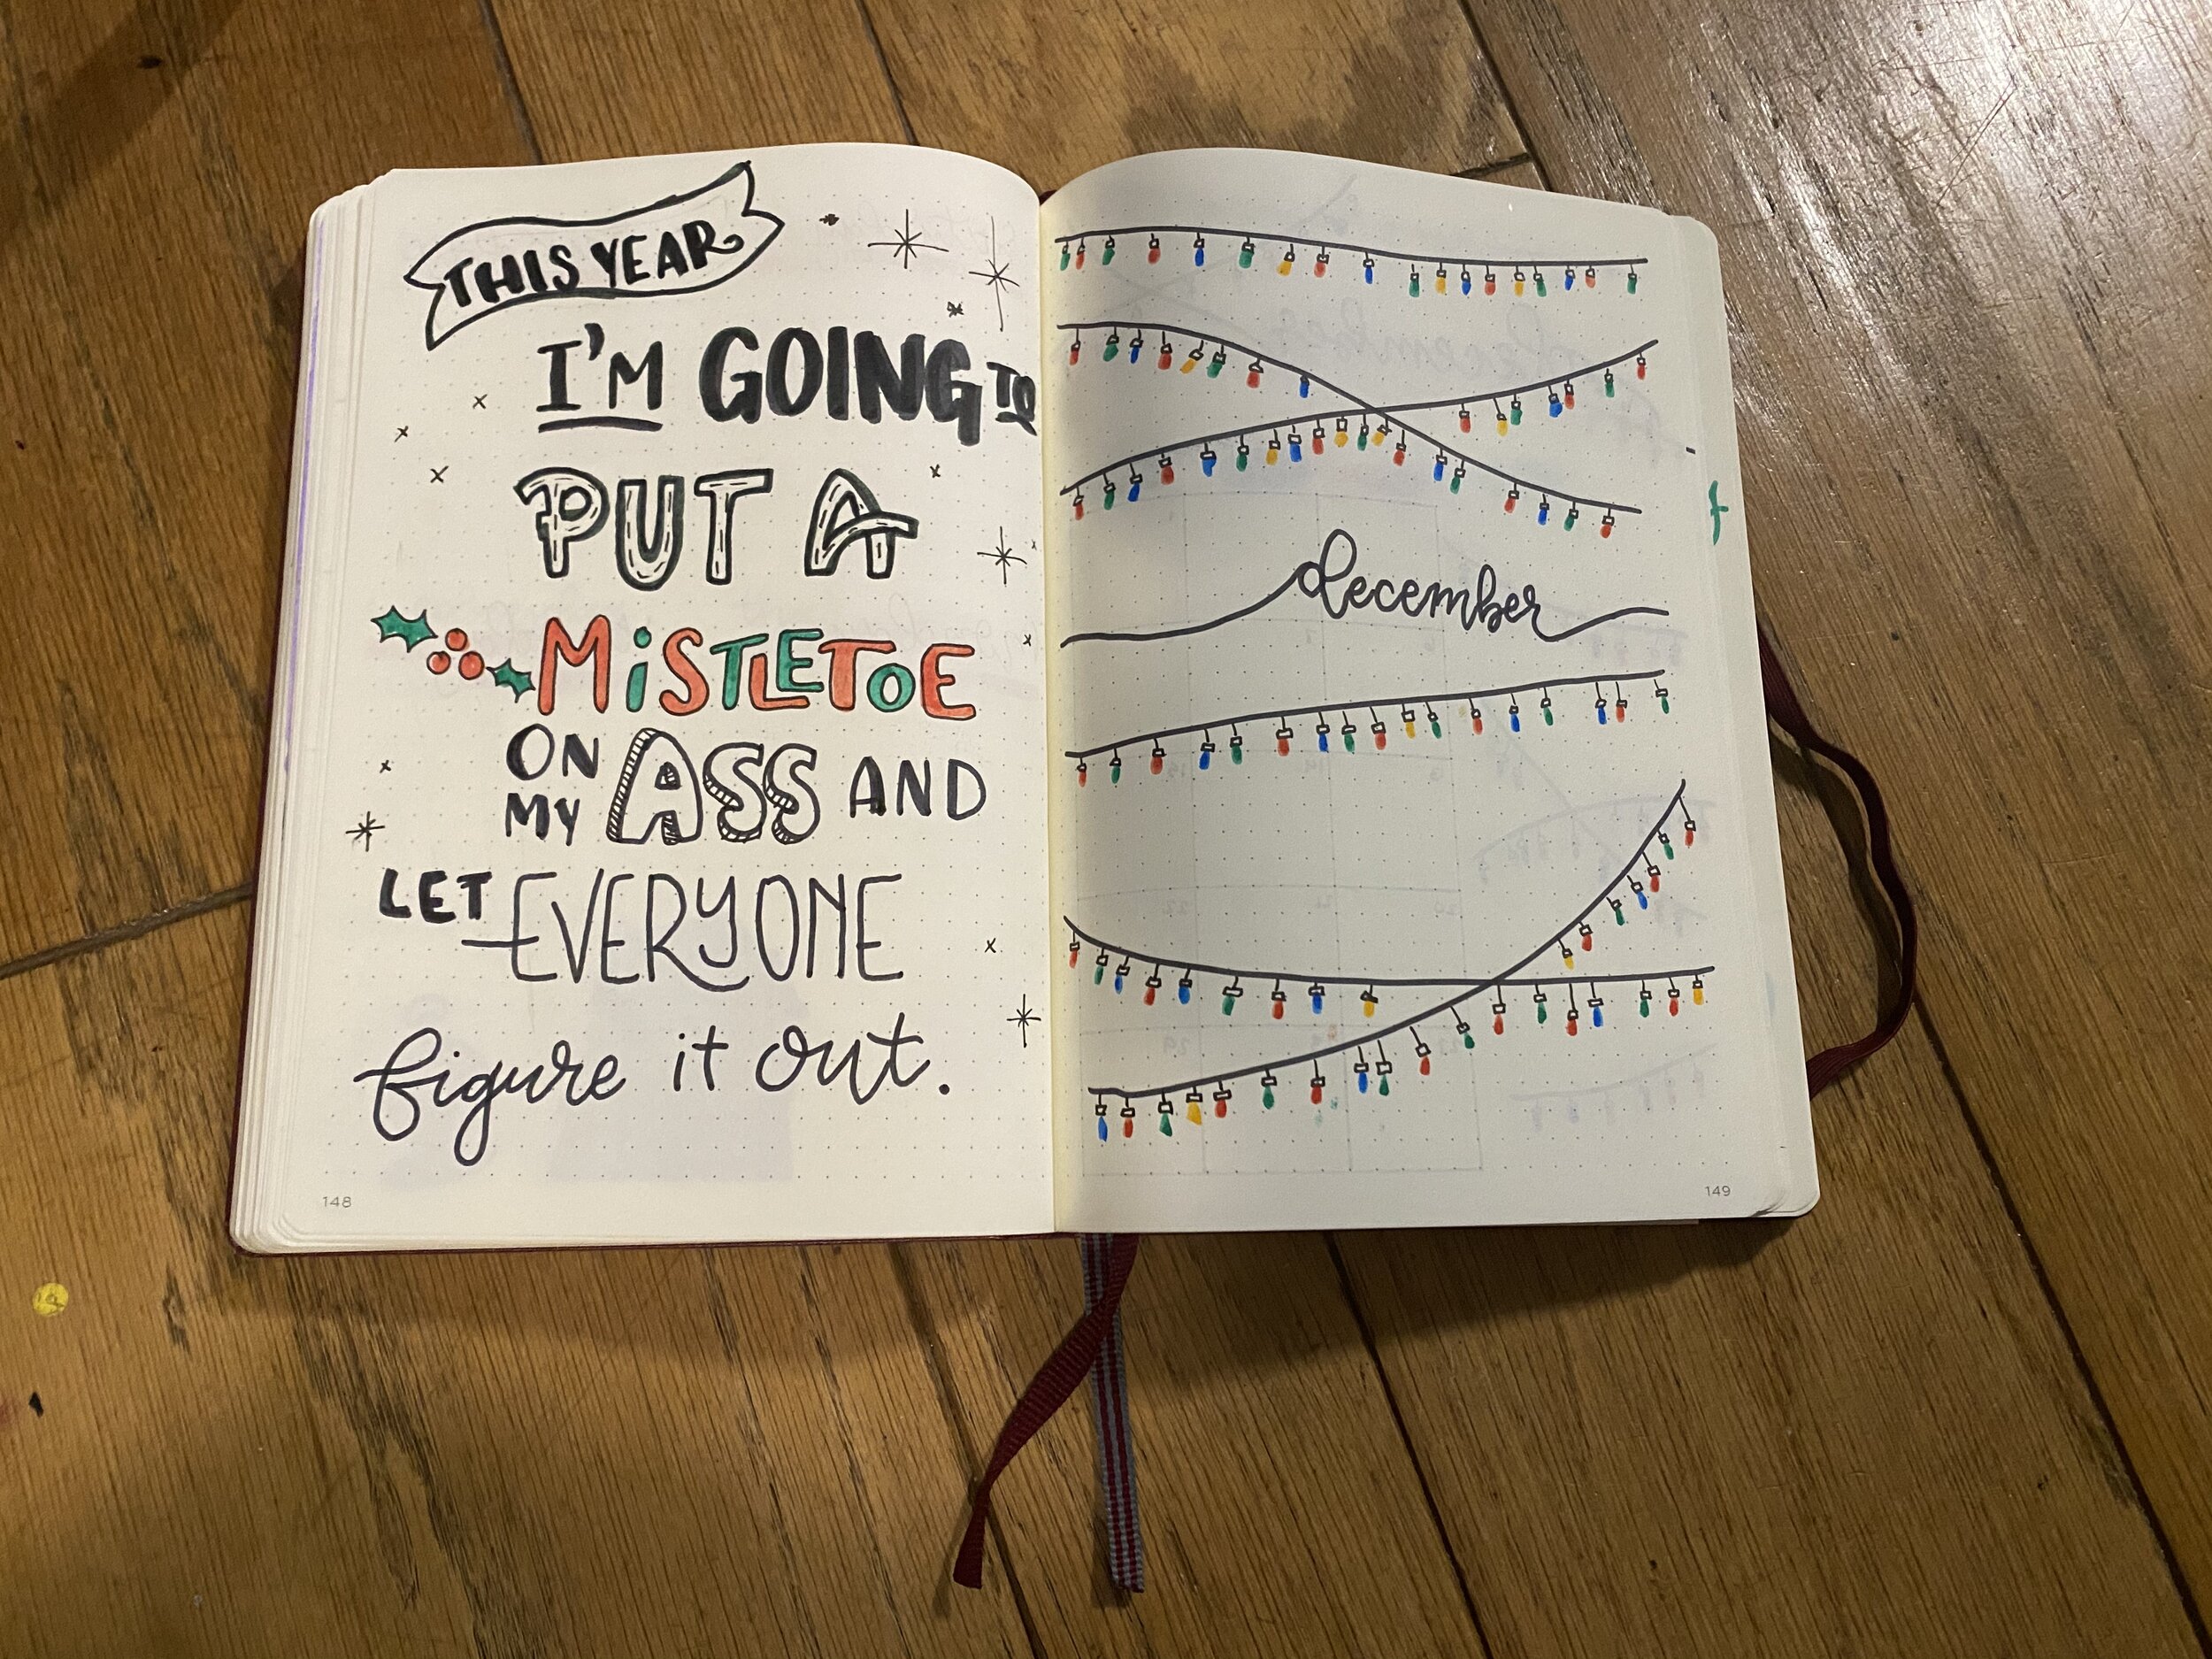 THIS YEAR
I'M GOING TO
PUT A
MiSTLETOE
ON MY ASS AND
LET EVERYONE
figure it out.
148
december
149